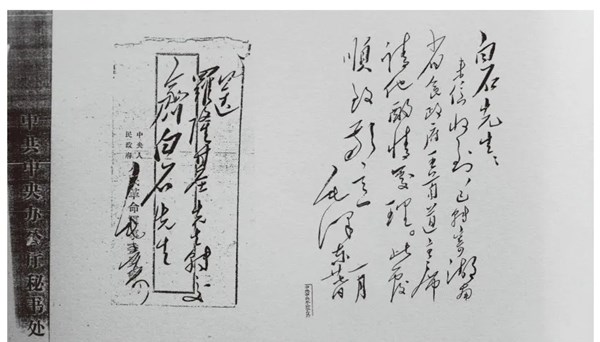 白石先生：
来信收到，已转寄湖南
省人民政府王首道主席
请他酌情处理。此覆
顺致敬意
毛泽东
一月
送
羅隆基先生转交
齊白石先生
中央人
民政府
革命
中共中央办公厅秘书处